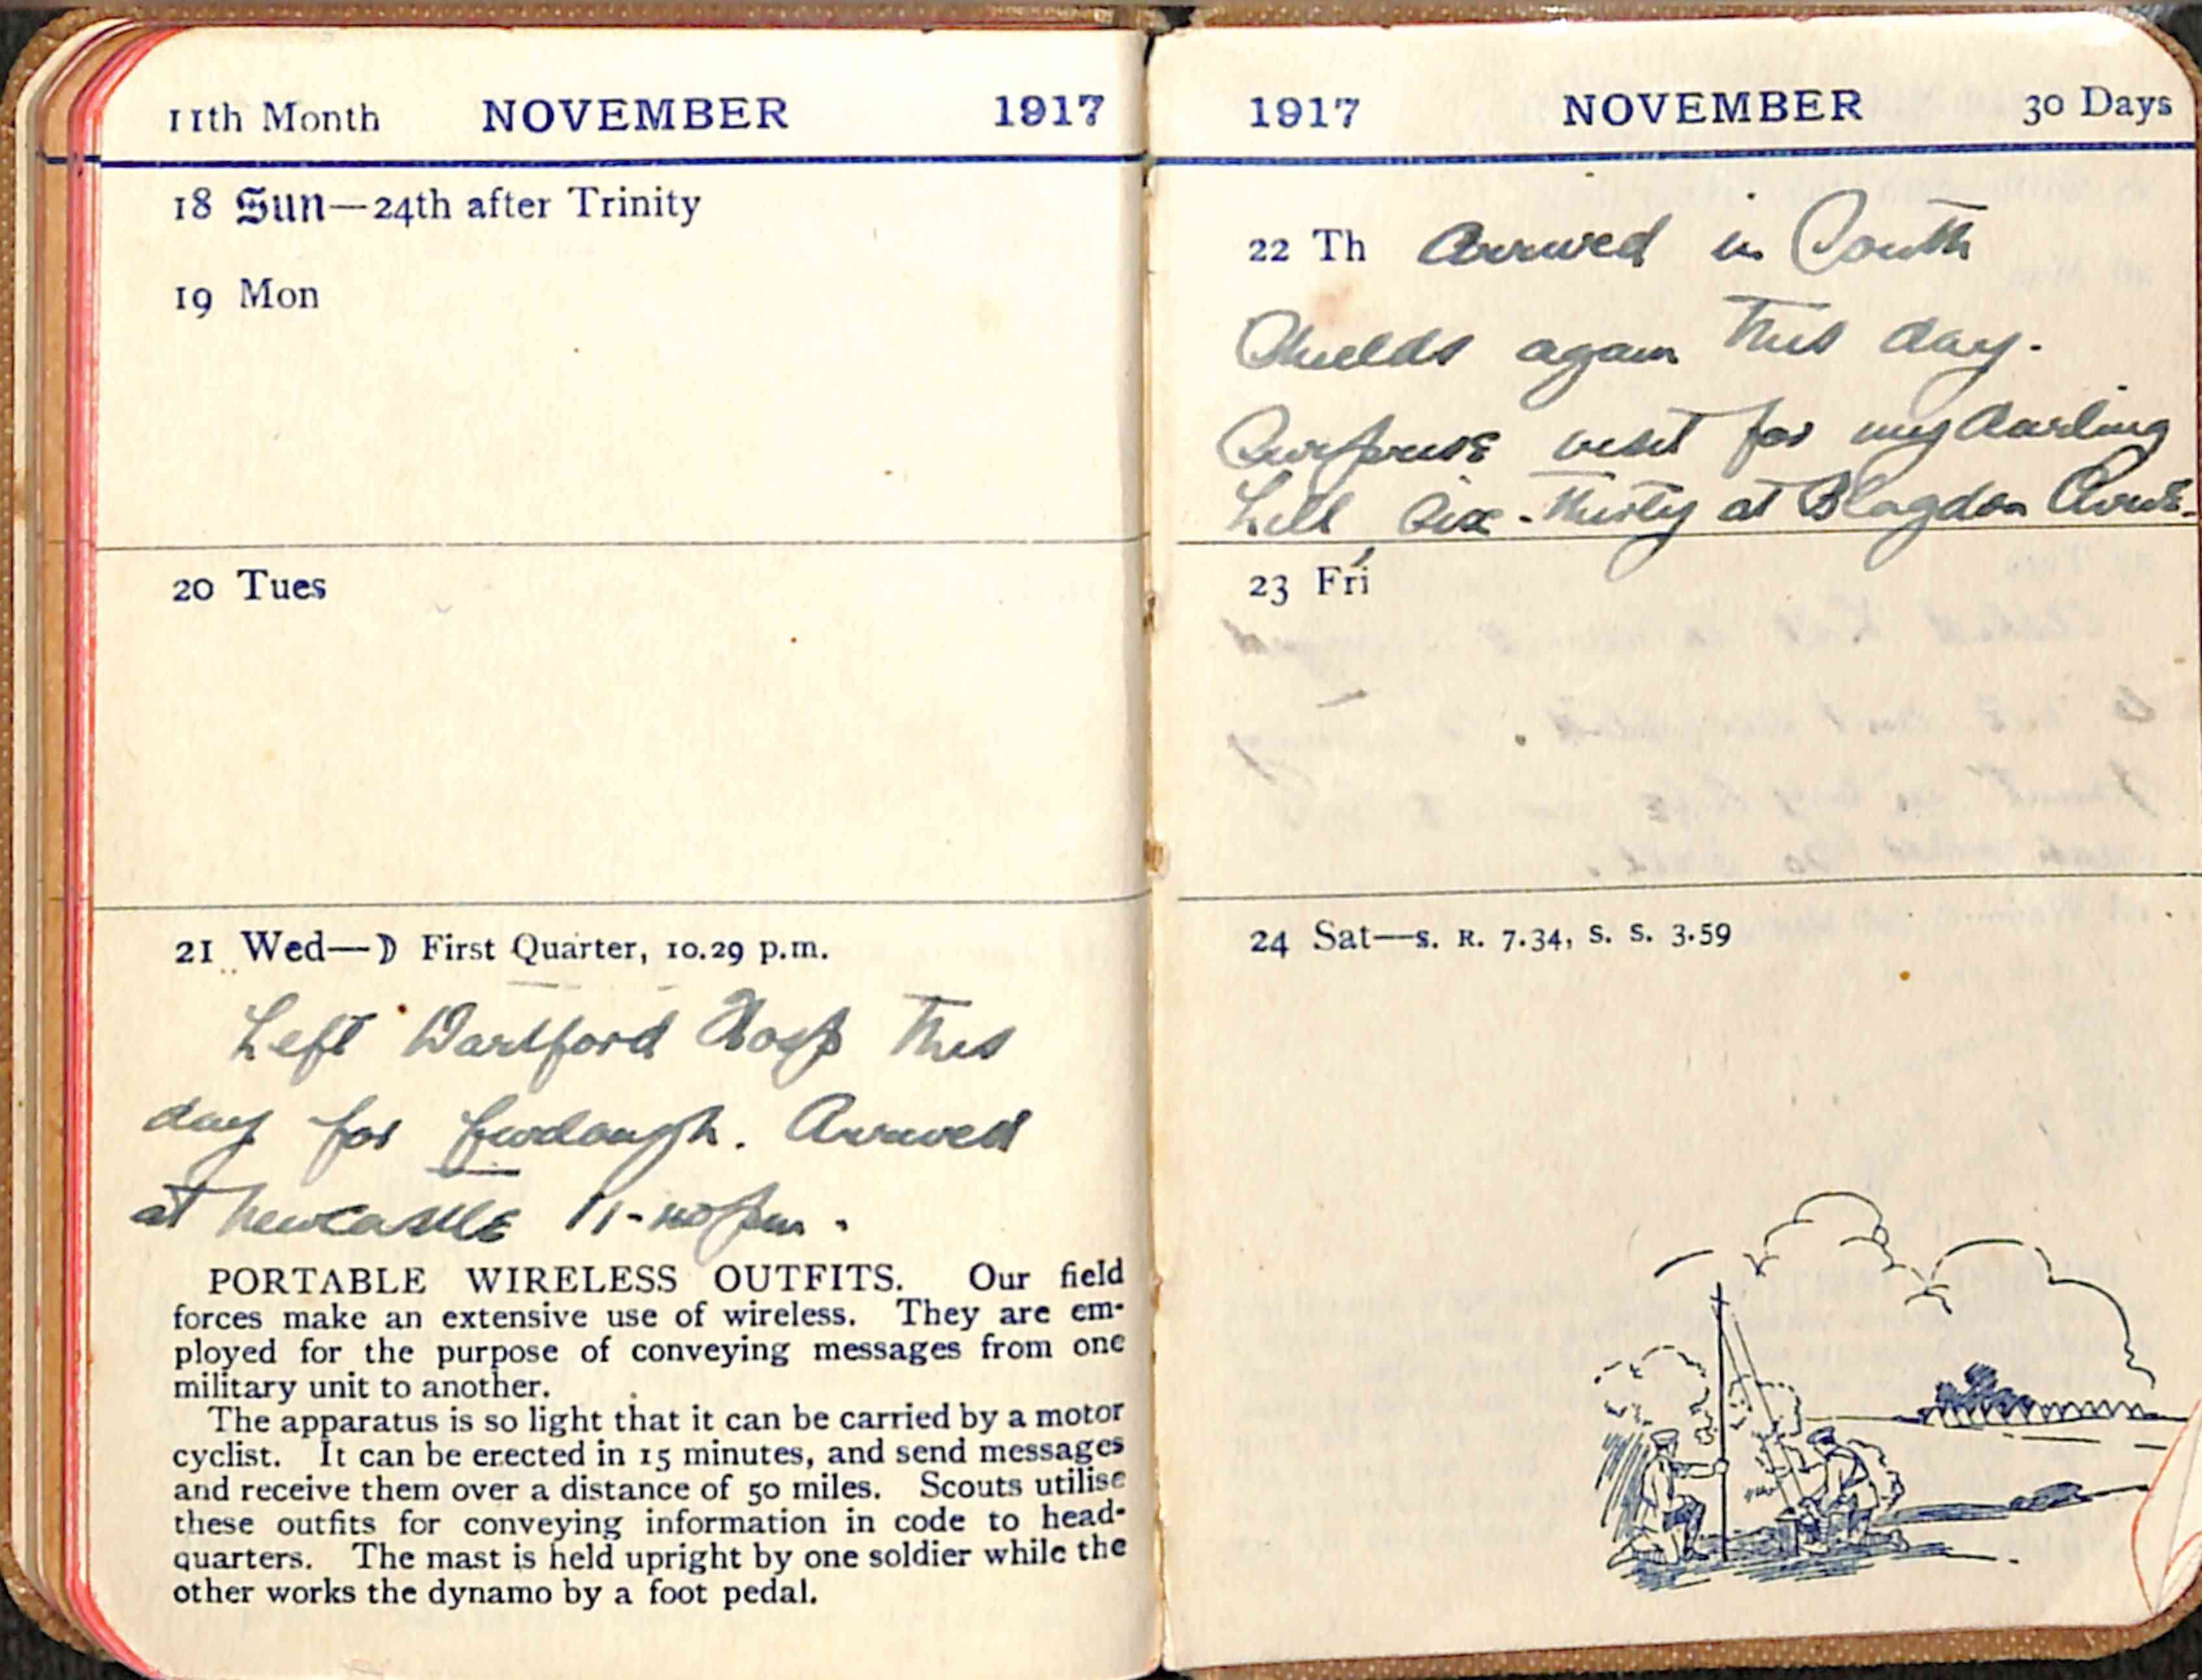 11th Month NOVEMBER 1917
18 Sun—24th after Trinity
19 Mon
20 Tues
21 Wed—☽ First Quarter, 10.29 p.m.
Left Dartford Hosp this
day for furlough. Arrived
at Newcastle 11-40 pm.
PORTABLE WIRELESS OUTFITS. Our field
forces make an extensive use of wireless. They are em-
ployed for the purpose of conveying messages from one
military unit to another.
The apparatus is so light that it can be carried by a motor
cyclist. It can be erected in 15 minutes, and send messages
and receive them over a distance of 50 miles. Scouts utilise
these outfits for conveying information in code to head-
quarters. The mast is held upright by one soldier while the
other works the dynamo by a foot pedal.
1917 NOVEMBER 30 Days
22 Th Arrived in South
Shields again this day.
Surprise visit for my darling
Six-thirty at Blagdon
23 Fri
24 Sat—S. R. 7.34, S. S. 3.59